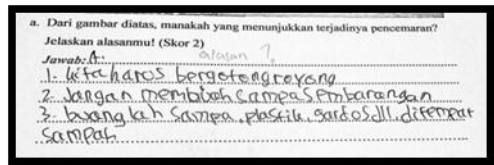 a. Dari gambar diatas, manakah yang menunjukkan terjadinya pencemaran?
Jelaskan alasanmu! (Skor 2)
Jawab: A. alasan ?
1. kita harus bergotongroyong
2. Jangan membuah sampa sembarangan
3. buanglah sampa, plastik, gardos dll. ditempat
sampah